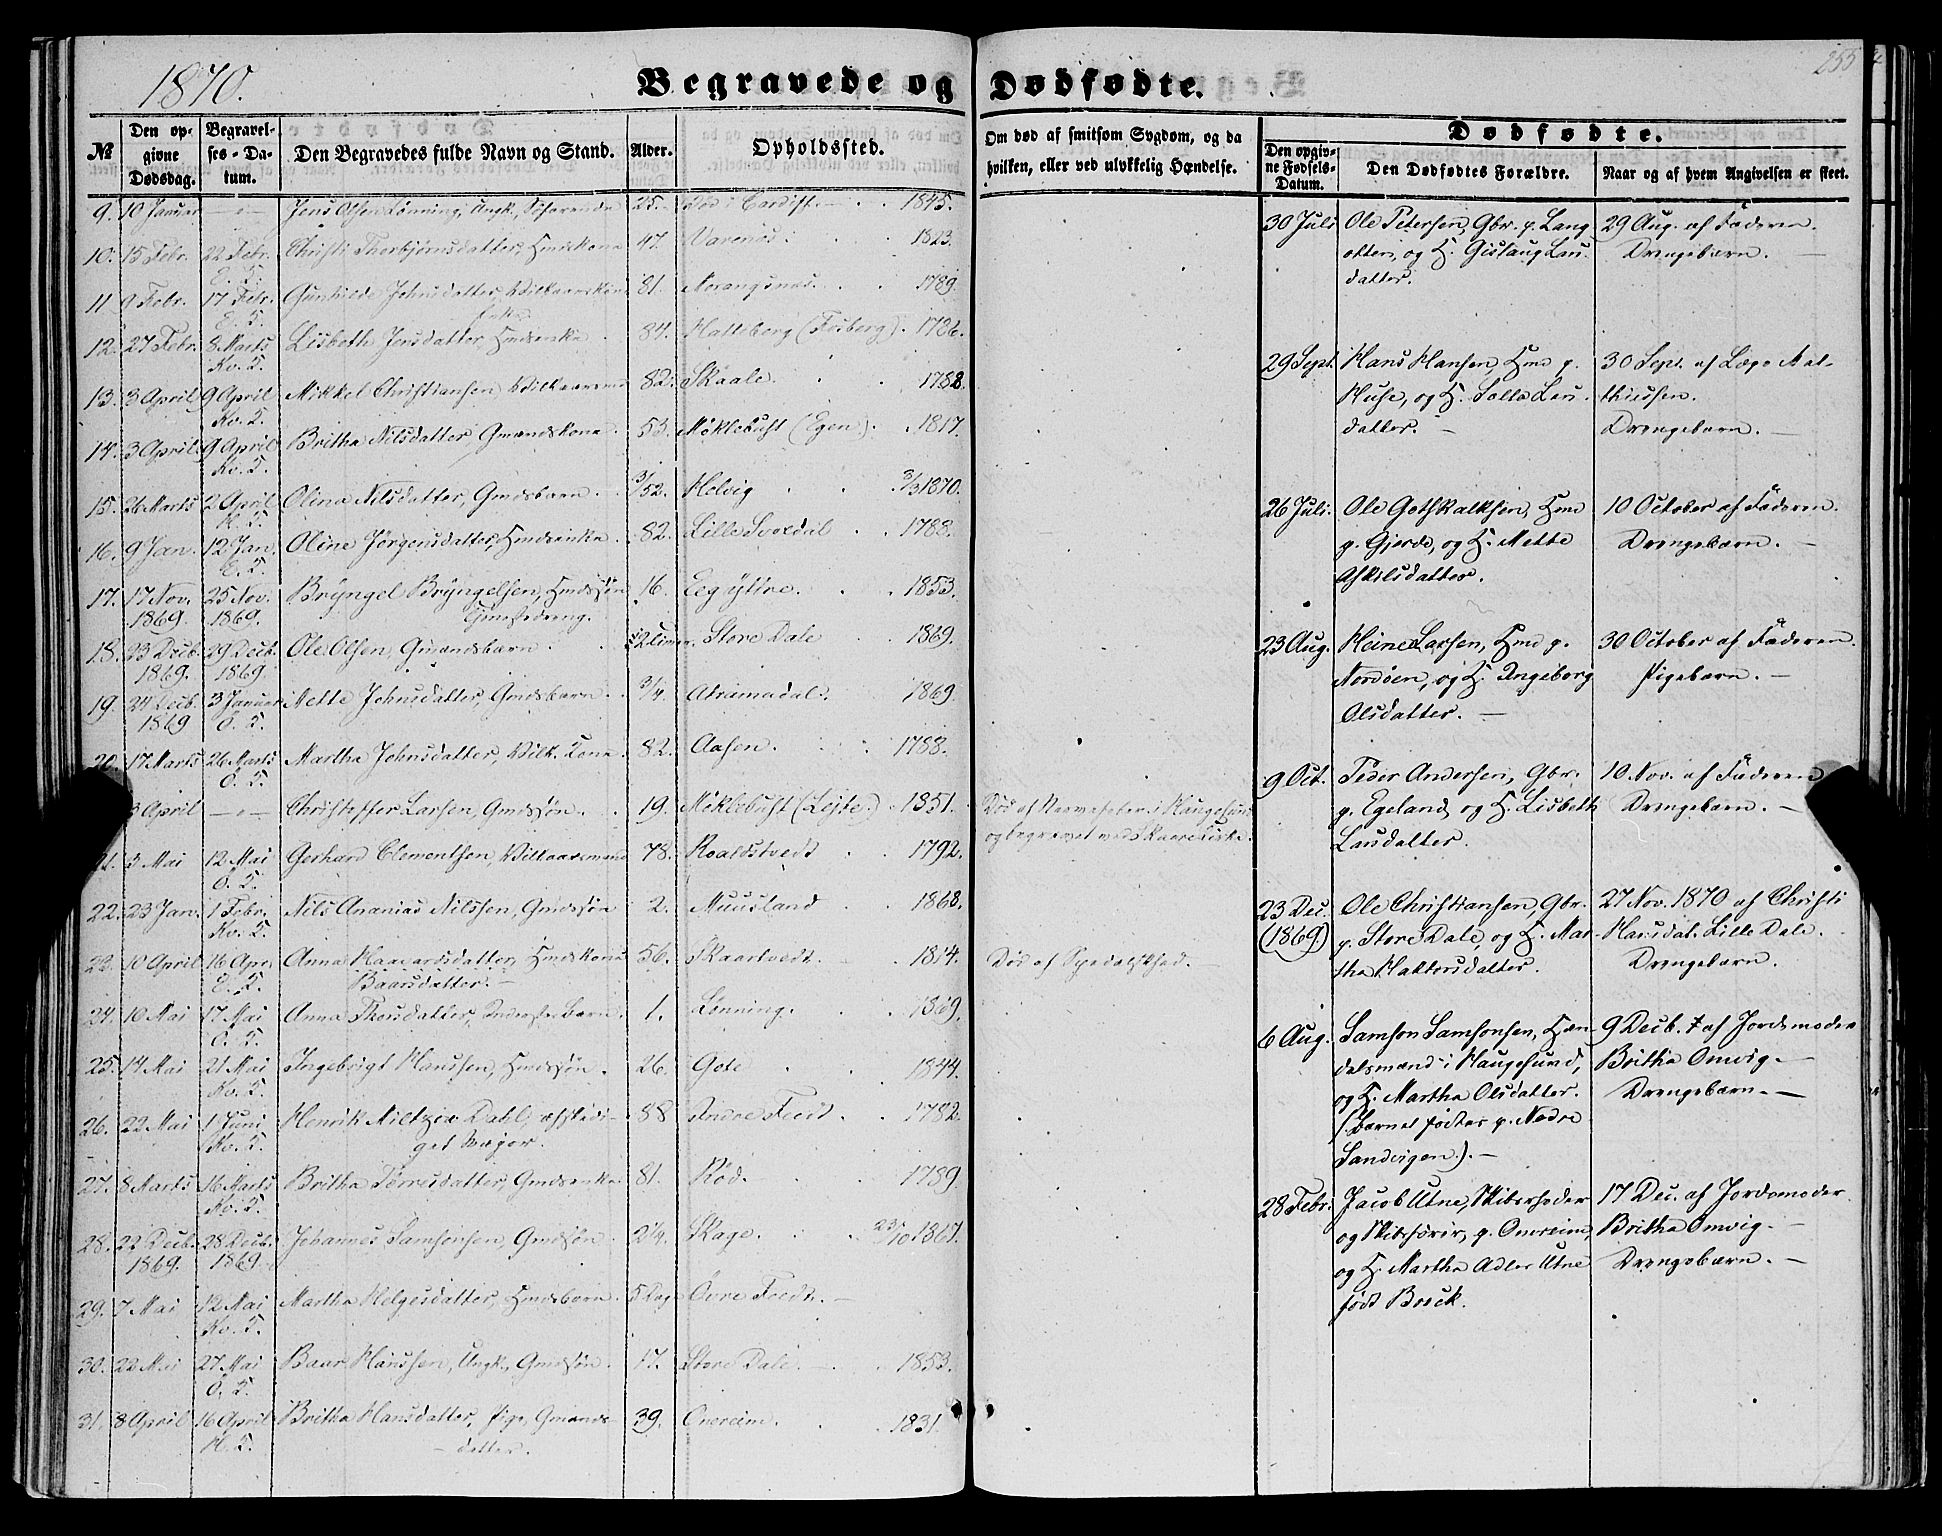 255
1870.
Begravede og Dødfødte.
№
Den opgivne Dødsdag.
Begravelses-Datum.
Den Begravedes fulde Navn og Stand.
Alder.
Opholdssted.
Om død af smitsom Sygdom, og da hvilken, eller ved ulykkelig Hændelse.
9. 10 Januar —〃— Jens Olsen Lønning, Ungk., Søfarende 25. Død i Cardiff. 1845.
10. 15 Febr. 22 Febr. Christi Thorbjørnsdatter, Hmdskone 47. Varenæs 1823.
E. K.
11 9 Febr. 17 Febr. Gunhilde Johnsdatter, Vilkaarskone 81. Norangsnæs. 1789.
E. K.
12. 27 Febr. 8 Marts Lisbeth Jensdatter, Hmdsenke 84. Hatteberg (Fosberg). 1786.
Kv. K.
13. 3 April 9 April Mikkel Christiansen, Vilkaarsmand 82. Skaale. 1788.
Kv. K.
14. 3 April 9 April Britha Nilsdatter, Gmandskone 53. Møklebust (Egen). 1817.
Kv. K.
15. 26 Marts 2 April Olina Nilsdatter, Gmdsbarn. 3/52. Helvig 3/3 1870.
H. K.
16. 9 Jan. 12 Jan. Oline Jørgensdatter, Hmdsenke. 82. Lille Svoldal 1788.
E. K.
17. 17 Nov. 25 Nov. Bryngel Bryngelsen, Hmdssøn 16. Eeg ytre. 1853.
1869. 1869. Tjenestedreng.
18. 23 Decb. 29 Decb. Ole Olsen, Gmandsbarn. 12 Timer. Store Dale 1869.
1869. 1869.
19. 24 Decb. 3 Januar Mette Johnsdatter, Gmdsbarn. 3/4. Atramadal. 1869.
1869 Ø. K.
20. 17 Marts 26 Marts Martha Johnsdatter, Vilk. Kone. 82. Aasen. 1788.
Ø. K.
3 April —〃— Christoffer Larsen, Gmdssøn. 19. Møklebust (Lejte.) 1851. Død af Nervefeber i Haugesund
og begravet ved Skaare Kirke.
21. 3 Mai 12 Mai Gerhard Clementsen, Vilkaarsmand 78. Roaldstvedt 1792.
Ø. K.
22. 23 Jan. 1 Febr. Nils Ananias Nilssen, Gmdssøn 2. Muusland 1868.
Kv. K.
23. 10 April 16 Apr. Anna Haavardsdatter, Hmdskone 56. Skaartvedt. 1814. Død af Spedalskhed.
E. K. Baarsdatter.
24. 10 Mai 17 Mai Anna Thorsdatter, Inderstbarn. 1. Lønning. 1869.
Ø. K.
25. 14 Mai 21 Mai Ingebrigt Hanssen, Hmdssøn. 26. Gote 1844.
Kv. K.
26. 22 Mai 1 Juni Henrik Miltzow Dahl, afskedi- 88 Indre Fedt. 1782.
Kv. K. get Major.
27. 8 Marts 16 Marts Britha Tørresdatter, Gmdsenke 81. Rød. 1789
Kv. K.
28. 22 Decb. 28 Decb. Johannes Samsonsen, Gmdssøn. 2 1/4. Skage. 23/10 1867.
1869. 1869.
29. 7 Mai 12 Mai Martha Helgesdatter, Hmdsbarn. 5 Dag Øvre Fedt.
Kv. K.
30. 22 Mai 27 Mai Baar Hanssen, Ungk., Gmdssøn. 17. Store Dale. 1853.
Ø. K.
31. 8 April 16 April Britha Hansdatter, Pige, Gmands- 39. Onereim. 1831.
H. K. datter.
Dødfødte.
Den opgivne Fødsels-Datum.
Den Dødfødtes Forældre.
Naar og af hvem Angivelsen er skeet.
30 Juli Ole Petersen, Gbr. p. Lang 29 Aug. af Faderen.
etteri, og H. Gislaug Lau- Drengebarn. —
datter.
29 Sept. Hans Hansen, Hmd p. 30 Sept. af Læge Mat-
Huse, og H. Salla Lau- thiessen.
datter. — Drengebarn. —
26 Juli. Ole Gotskalksen, Hmd 10 October af Faderen.
p. Gjerde, og H. Mette Drengebarn. —
Askilsdatter.
23 Aug. Heine Larsen, Hmd p. 30 October af Faderen.
Nordøen, og H. Ingeborg Pigebarn. —
Olsdatter. —
9 Oct. Peder Andersen, Gbr. 10 Nov. af Faderen
p. Egeland, og H. Lisbeth Drengebarn. —
Larsdatter.
23 Dec. Ole Christiansen, Gbr. 27 Nov. 1870 af Christi
(1869) p. Store Dale, og H. Mar- Hansdat. Lille Dale.
tha Haktorsdatter. Drengebarn.
6 Aug. Samson Samsonsen, Han- 9 Decb. af Jordemoder
delsmand i Haugesund, Britha Omvig. —
og H. Martha Olsdatter. Drengebarn. —
(Barnet fødtes p. Nedre
Sandvigen). —
28 Febr. Jacob Utne, Skibsrheder 17 Dec. af Jordemoder
og Skibsfører, p. Onereim, Britha Omvig. —
og H. Martha Adler Utne Drengebarn. —
født Boeck.